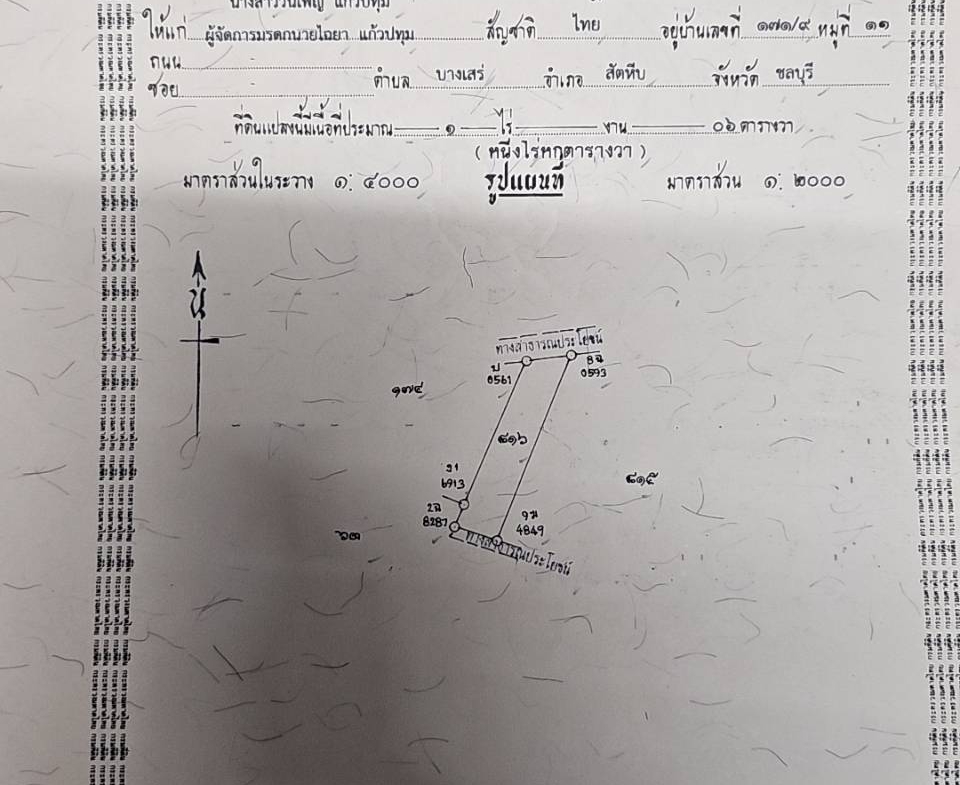 นางสาววันเพ็ญ แก้วปทุม
ให้แก่ ผู้จัดการมรดกนายไฉยา แก้วปทุม สัญชาติ ไทย อยู่บ้านเลขที่ ๑๗๑/๙ หมู่ที่ ๑๑
ถนน
ซอย ตำบล บางเสร่ อำเภอ สัตหีบ จังหวัด ชลบุรี
ที่ดินแปลงนี้มีเนื้อที่ประมาณ ๑ ไร่ งาน ๐๖ ตารางวา
( หนึ่งไร่หกตารางวา )
มาตราส่วนในระวาง ๑: ๔๐๐๐ รูปแผนที่ มาตราส่วน ๑: ๒๐๐๐
น
ทางสาธารณประโยชน์
บ
0561
8ฉ
0593
๑๗๔
๘๑๖
ง1
6913
๘๑๕
2ฉ
8287
4849
๖๓
ทางสาธารณประโยชน์